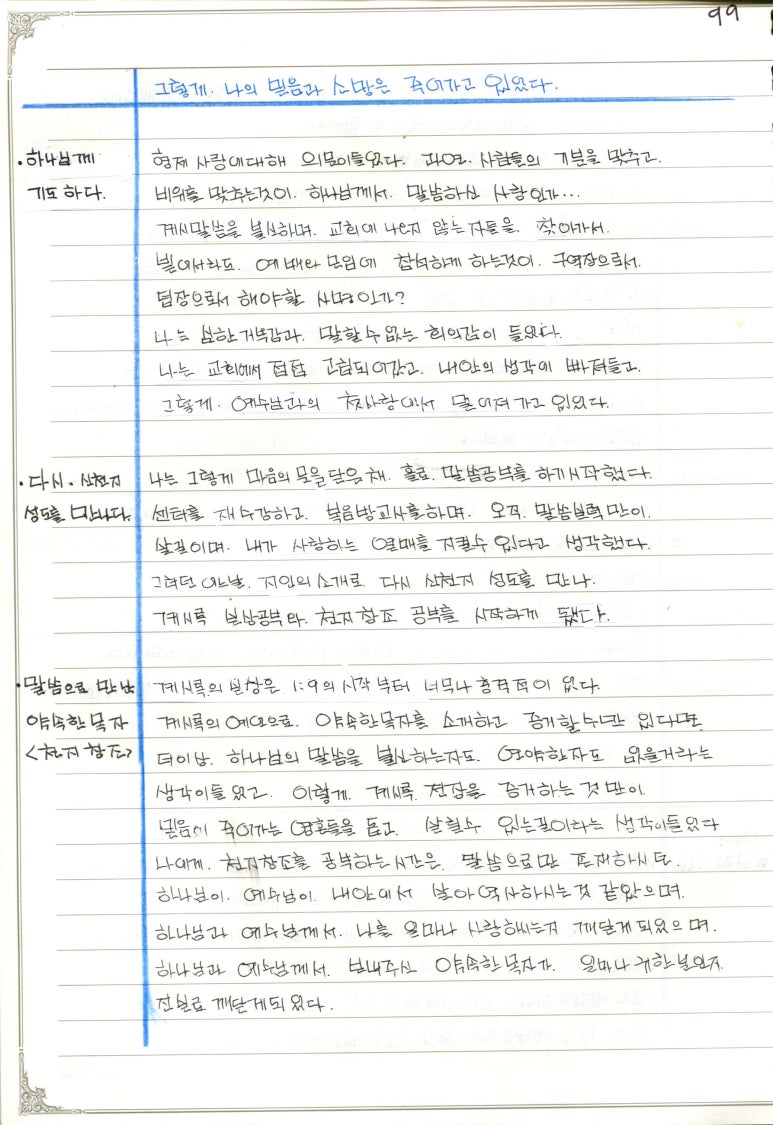 99
그렇게. 나의 믿음과 소망은 죽어가고 있었다.
·하나님께
기도 하다.
형제 사랑에대해 의문이들었다. 과연. 사람들의 기분을 맞추고.
비위를 맞추는것이. 하나님께서. 말씀하신 사랑인가...
계시말씀을 불신하며. 교회에 나오지 않는 자들을. 찾아가서.
빌어서라도. 예배와 모임에 참석하게 하는것이. 구역장으로서.
팀장으로서 해야할 사명인가?
나는 심한 거부감과. 말할수 없는 회의감이 들었다.
나는 교회에서 점점 고립되어갔고. 내안의 생각에 빠져들고.
그렇게. 예수님과의 첫사랑에서 멀어져 가고 있었다.
·다시. 신천지
성도를 만나다.
나는 그렇게 마음의 문을 닫은채. 홀로. 말씀공부를 하기시작했다.
센터를 재수강하고. 복음방교사를하며. 오직. 말씀실력만이.
살길이며. 내가 사랑하는 열매를 지킬수 있다고 생각했다.
그러던 어느날. 지인의소개로 다시 신천지 성도를 만나.
계시록 실상공부와. 천지창조 공부를 시작하게 됐다.
·말씀으로 만난
약속한목자
<천지창조>
계시록의 실상은 1:9의 시작부터 너무나 충격적이 었다.
계시록의 예언으로. 약속한목자를 소개하고 증거할수만 있다면
더이상. 하나님의 말씀을 불신하는자도. 연약한자도 없을거라는
생각이들었고. 이렇게. 계시록 전장을 증거하는 것만이.
믿음이 죽어가는 영혼들을 돕고. 살릴수 있는길이라는 생각이들었다
나에게. 천지창조를 공부하는시간은. 말씀으로만 존재하시던.
하나님이. 예수님이. 내안에서 살아역사하시는것 같았으며.
하나님과 예수님께서. 나를 얼마나 사랑하시는지 깨닫게되었으며.
하나님과 예수님께서. 보내주신 약속한목자가. 얼마나 귀한분인지.
진실로 깨닫게되었다.